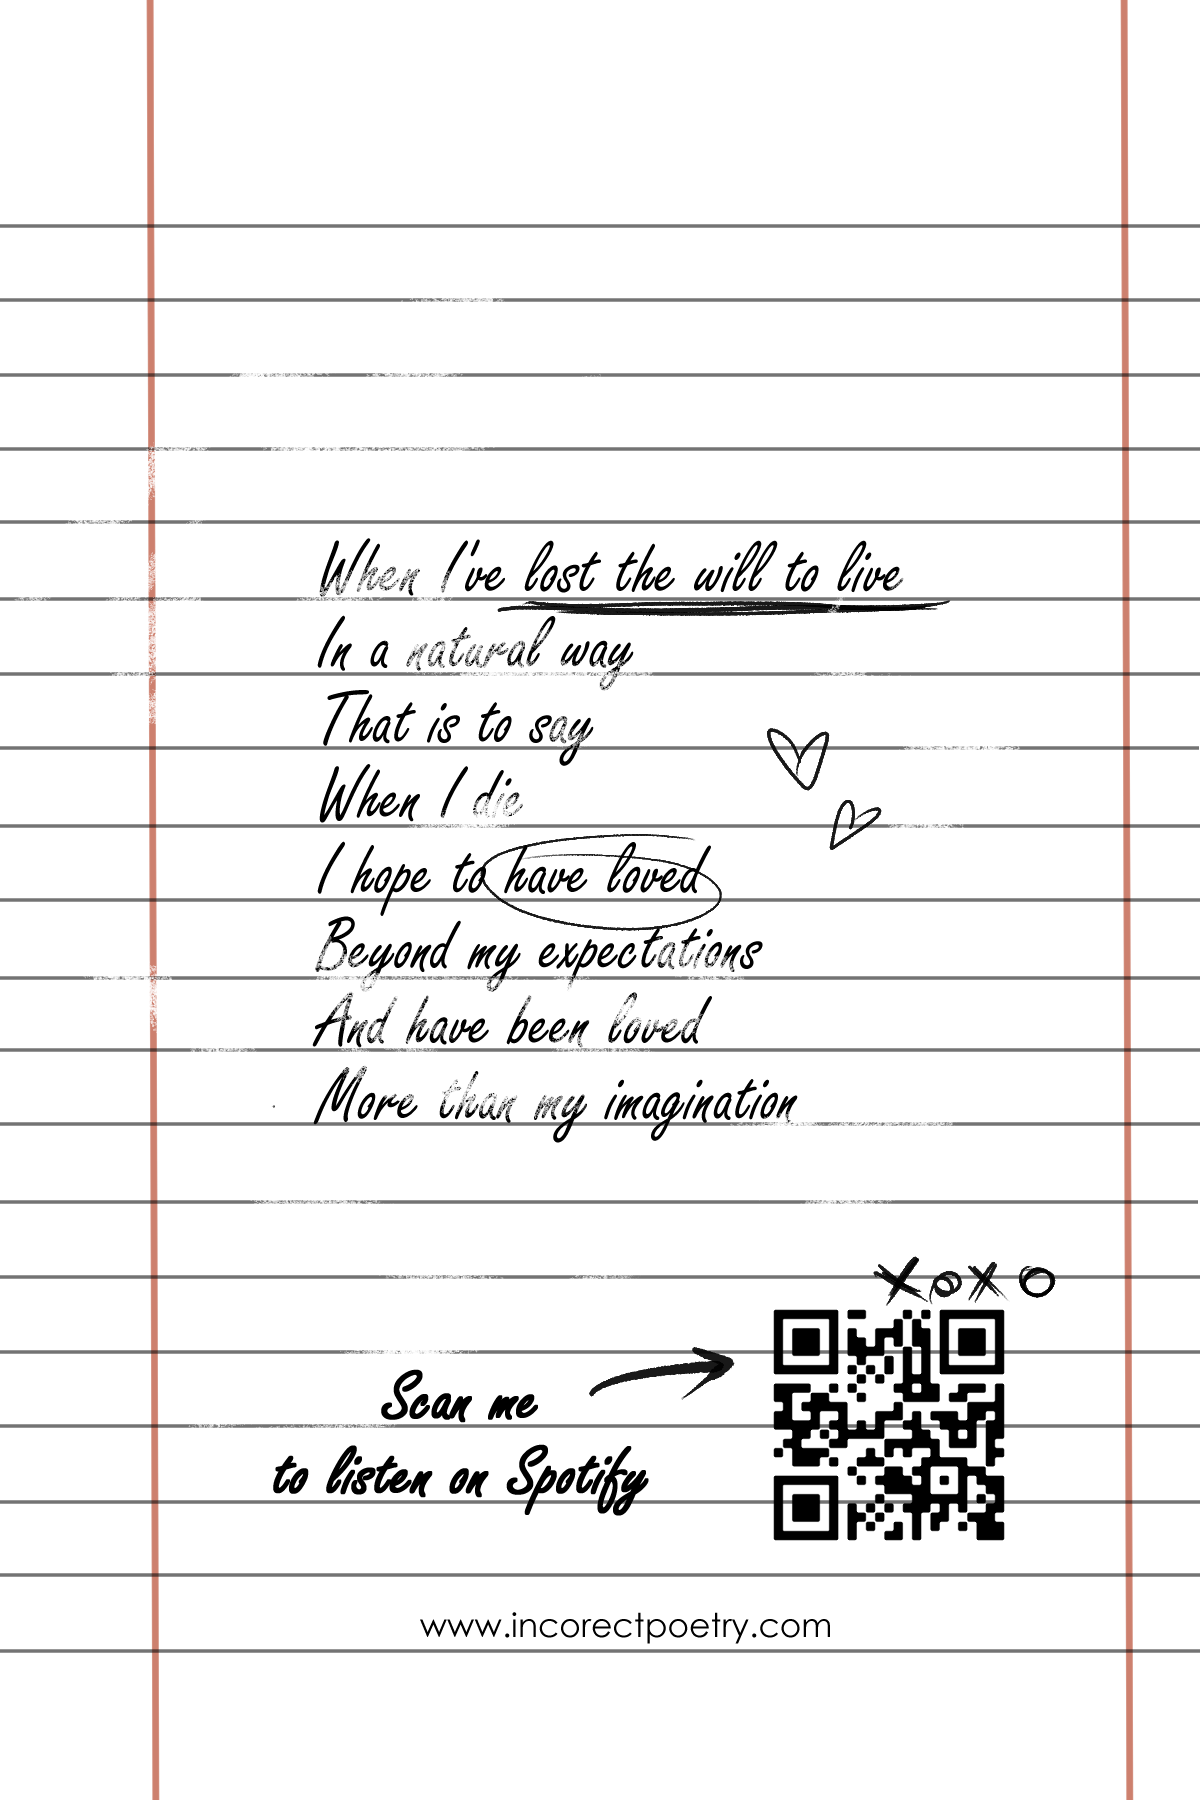 When I've lost the will to live
In a natural way
That is to say
When I die
I hope to have loved
Beyond my expectations
And have been loved
More than my imagination
XOXO
Scan me
to listen on Spotify
www.incorectpoetry.com